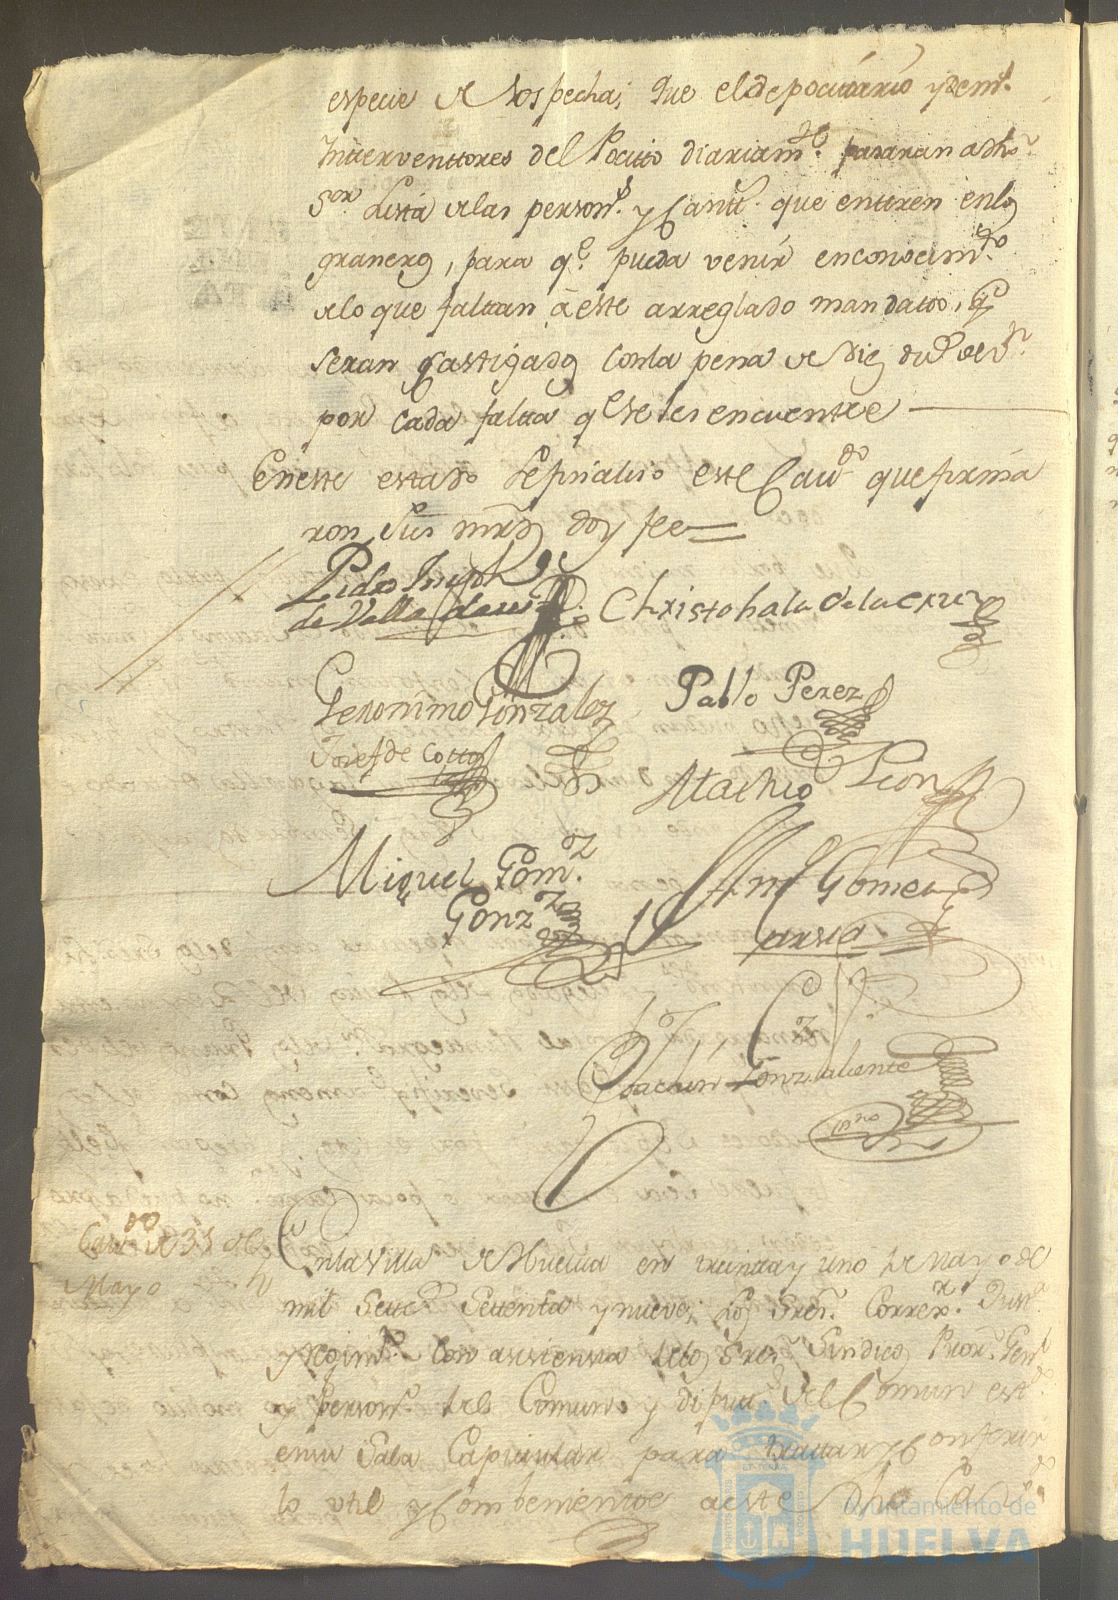 especie de sospecha; que el depocitario y dem.s
Interventtores del Pocito diariam.te pasaran a dho
S.or Lista de las person.s y Cantt.s que entren en los
graneros, para q.e pueda venir en conocim.to
de lo que faltan à este arreglado mandato, q.e
seran Castigados con la pena de diez du.s de v.n
por cada falta q.e se les encuentre
En este estado se finalisó este Cav.do que firma
ron sus mrds doy fee
Pedro Joseph
de Valla
Christobal de la Cruz
Geronimo Gonzales
Pablo Perez
Josef de Cotto
Mathio Leon
Miguel Gom.z
Gonz.z
Ant.o Gomez
Joachin Gonz.z Valiente
Cav.do de 31 de
Mayo
En la Villa de Huelva en treinta y uno de Mayo de
mil Sette.s Settenta y nueve; los Sres. Correx.r Just.a
y regim.to con asistensia de los Sres. Sindico Procr. Gen.l
y person.o del Comun, y diputt.s del Comun est.do
en su Sala Capitular para tratar y Conferir
lo util y Combeniente a este dho
Ayuntamiento de
HUELVA